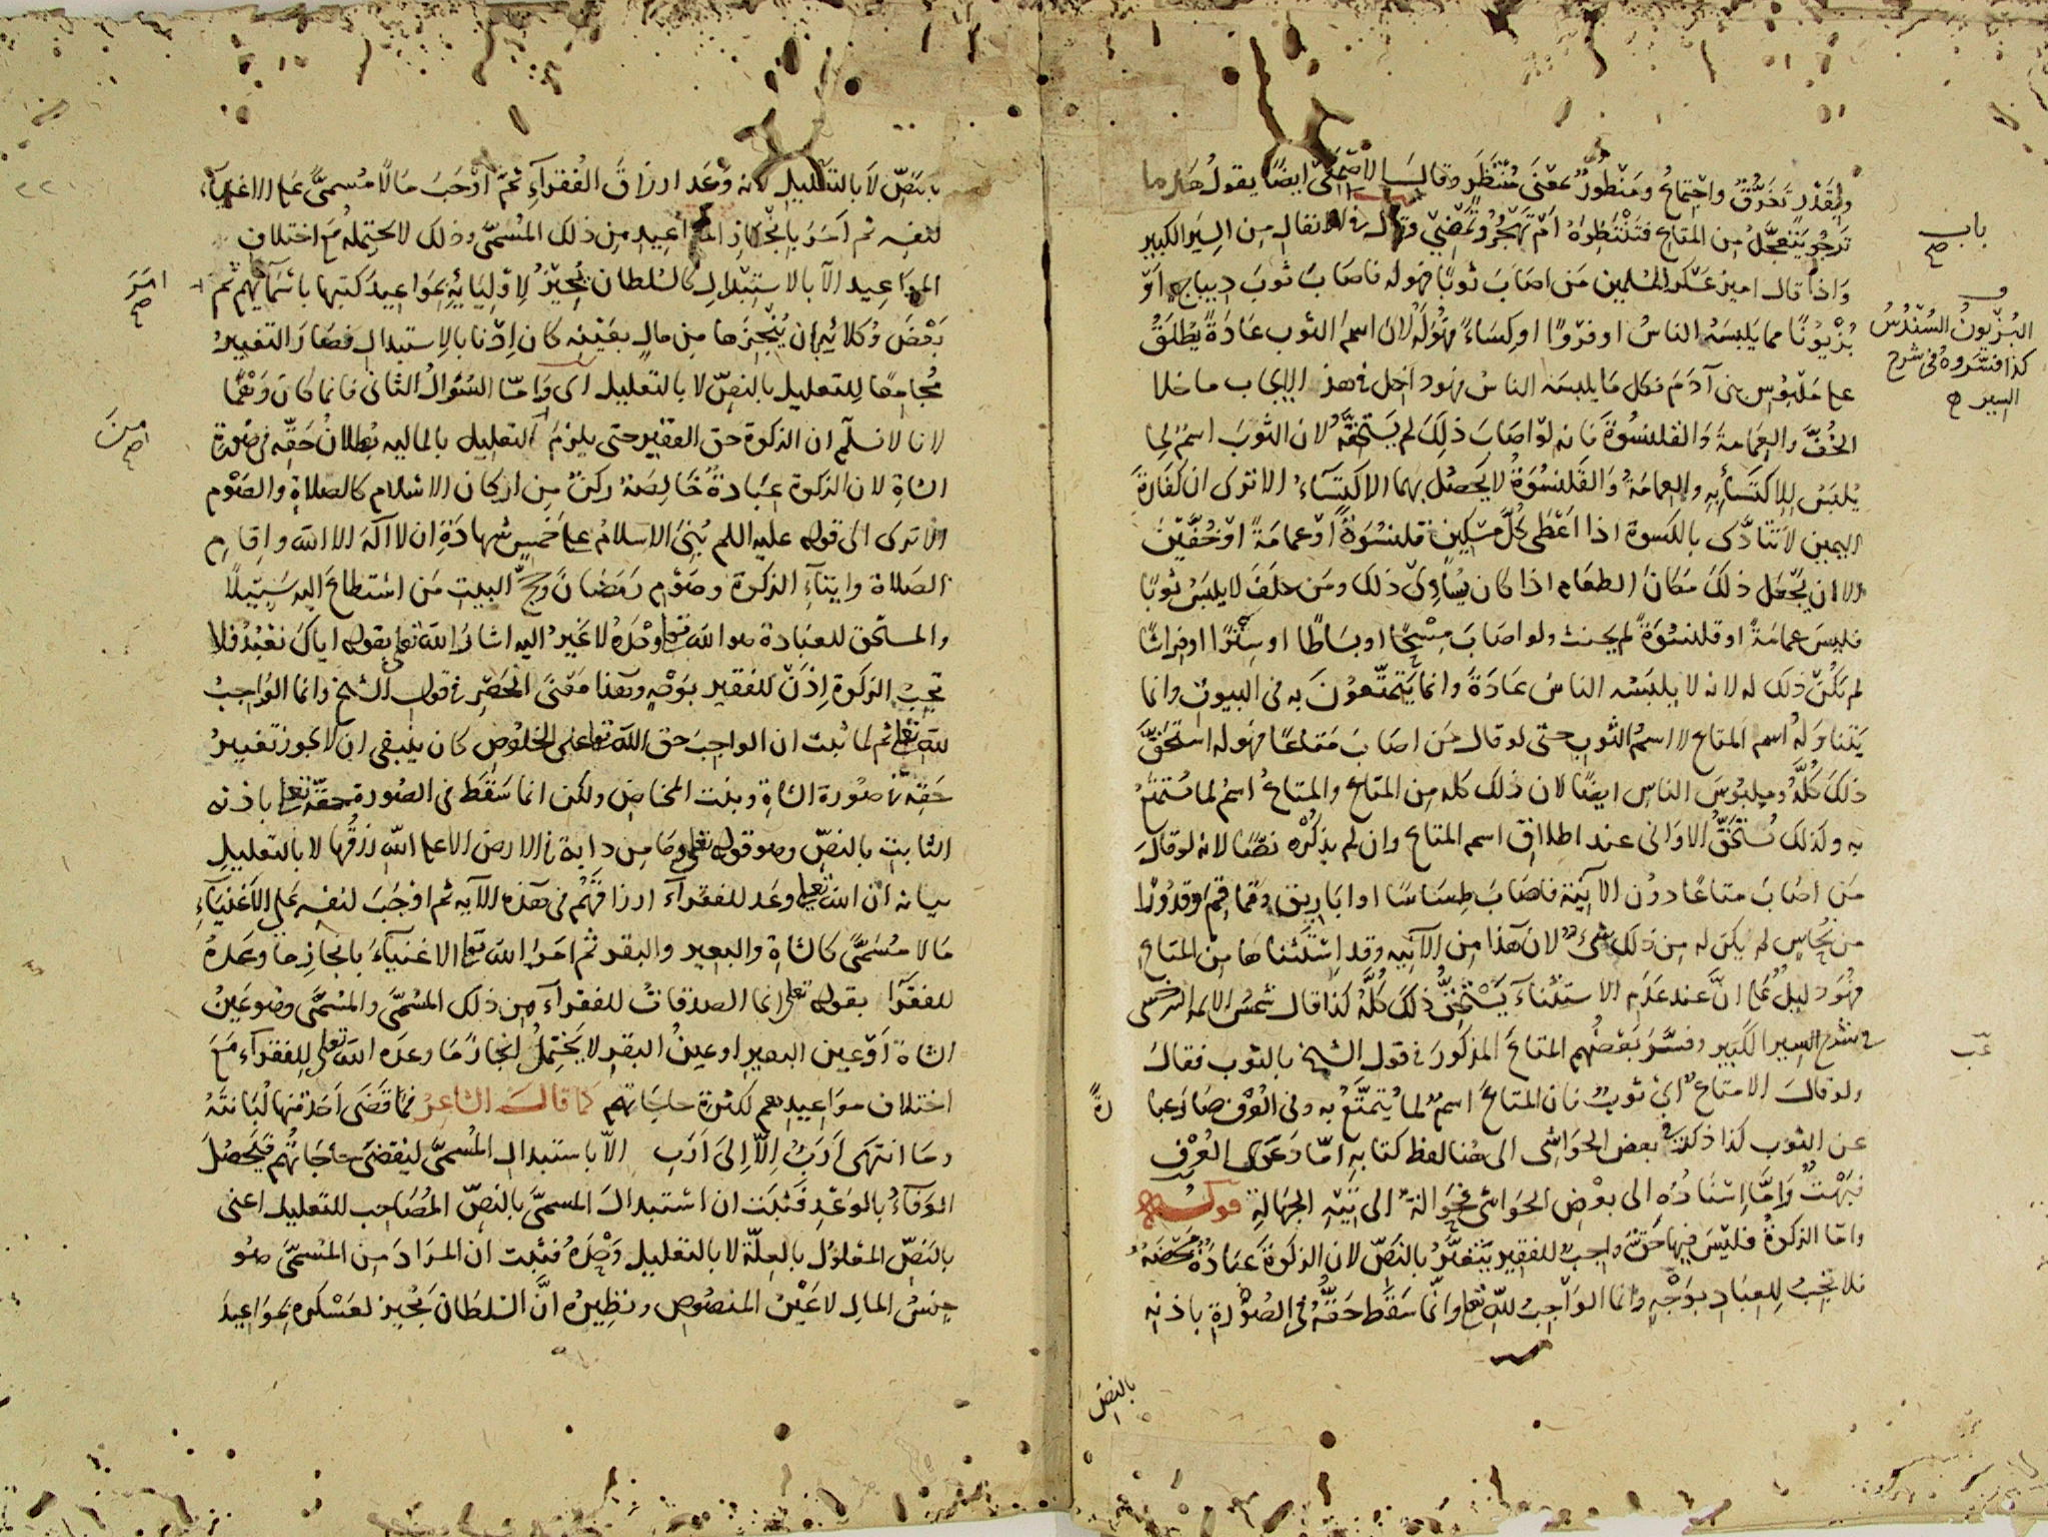 والمقدر تخرق واجتماع ومنظور بمعنى منتظر وقال الاصمعي ايضا يقول هذا ما
ترجو يتعجل من المتاع فتنتظراه ام تهجر وتمضي وقال في الانفال من السير الكبير
واذا قال امير عسكر المسلمين من اصاب ثوبا فهو له فاصاب ثوب ديباج او
بزيونا مما يلبسه الناس او فروا او كساء فهو له لان اسم الثوب عادة يطلق
على ملبوس بني آدم فكل ما يلبسه الناس فهو داخل في هذا الايجاب ما خلا
الخف والعمامة والقلنسوة فانه لو اصاب ذلك لم يستحقه لان الثوب اسم لما
يلبس للاكتسائه والعمامة والقلنسوة لا يحصل بهما الاكتساء الا ترى ان كفارة
اليمين لا تتادى بالكسوة اذا اعطى كل مسكين قلنسوة او عمامة او خفين
الا ان يجعل ذلك مكان الطعام اذا كان يساوي ذلك ومن حلف لا يلبس ثوبا
فلبس عمامة او قلنسوة لم يحنث ولو اصاب مسحا او بساطا او سترا او فراشا
لم يكن ذلك له لانه لا يلبسه الناس عادة وانما يتمتعون به في البيوت وانما
يتناوله اسم المتاع لا اسم الثوب حتى لو قال من اصاب متاعا فهو له استحق
ذلك كله وملبوس الناس ايضا لان ذلك كله من المتاع والمتاع اسم لما يستمتع
به ولذلك تستحق الاواني عند اطلاق اسم المتاع وان لم يذكره نصا لانه لو قال
من اصاب متاعا دون الآنية فاصاب طساسا او اباريق وقماقم وقدورا
من نحاس لم يكن له من ذلك شيء لان هذا من الآنيه وقد استثناها من المتاع
فهو دليل على ان عند عدم الاستثناء يستحق ذلك كله كذا قال شمس الايمه السرخسي
في شرح السير الكبير وفسر بعضهم المتاع المذكور في قول الشيخ بالثوب فقال
ولو قال الامتاع اي ثوب فان المتاع اسم لما يتمتع به وفي العرف صار عبا
عن الثوب كذا ذكر في بعض الحواشي الى هنا لفظ كتابه اما دعوى العرف
فبهت واما اسناده الى بعض الحواشي فحوالة الى تيه الجهالة قوله
واما الزكوة فليس فيها حق واجب للفقير يتغير بالنص لان الزكوة عبادة محضه
فلا تجب للعباد بوجه وانما الواجب لله تعلى وانما سقط حقه في الصورة باذنه
باب
صح
البزيون السندس
كذا فسروه في شرح
السير
رة
بالنص
بالنص لا بالتعليل لانه وعد ارزاق الفقراء ثم اوجب مالا مسمى على الاغنياء
لنفسه ثم امر بانجاز المواعيد من ذلك المسمى وذلك لا يحتمله مع اختلاف
المواعيد الا بالاستبدال كالسلطان يجيز لاوليائه بمواعيد كتبها باسمائهم ثم
بعض وكلائه بان ينجزها من مال بعينه كان اذنا بالاستبدال فصار التغيير
مجامعا للتعليل بالنص لا بالتعليل اي واما السؤال الثاني فانما كان وهما
لانا لا نسلم ان الزكوة حق الفقير حتى يلزم التعليل بالماليه بطلان حقه في صورة
الشاة لان الزكوة عبادة خالصة ركن من اركان الاسلام كالصلاة والصوم
الا ترى الى قوله عليه السلم بني الاسلام على خمس شهادة ان لا اله الا الله واقام
الصلاة وايتاء الزكوة وصوم رمضان وحج البيت من استطاع اليه سبيلا
والمستحق للعبادة هو الله تعلى وحده لا غير اليه اشار الله تعلى بقوله اياك نعبد فلا
تجب الزكوة اذن للفقير بوجه وهذا معنى الحصر في قول الشيخ وانما الواجب
لله تعلى ثم لما ثبت ان الواجب حق الله تعلى على الخلوص كان ينبغي ان لا يجوز تغيير
حقه من صورة الشاة وبنت المخاض ولكن انما سقط في الصورة حقه تعلى باذنه
الثابت بالنص وهو قوله تعلى وما من دابة في الارض الا على الله رزقها لا بالتعليل
بيانه ان الله تعلى وعد للفقراء ارزاقهم في هذه الآيه ثم اوجب لنفسه على الاغنياء
مالا مسمى كالشاة والبعير والبقر ثم امر الله تعلى الاغنياء بانجاز ما وعده
للفقراء بقوله تعلى انما الصدقات للفقراء من ذلك المسمى والمسمى وهو عين
الشاة او عين البعير او عين البقر لا يحتمل انجاز ما وعده الله تعلى للفقراء مع
اختلاف مواعيدهم لكثرة حاجاتهم كما قال الشاعر فما قضى احد منها لبانته
وما انتهى ارب الا الى ارب الا باستبدال المسمى ليقضى حاجاتهم فيحصل
الوفاء بالوعد فثبت ان استبدال المسمى بالنص المصاحب للتعليل اعني
بالنص المعلول بالعلة لا بالتعليل وحده فثبت ان المراد من المسمى هو
جنس المال لا عين المنصوص ونظيره ان السلطان يجيز لعسكره بمواعيد
امر
صح
من
صح